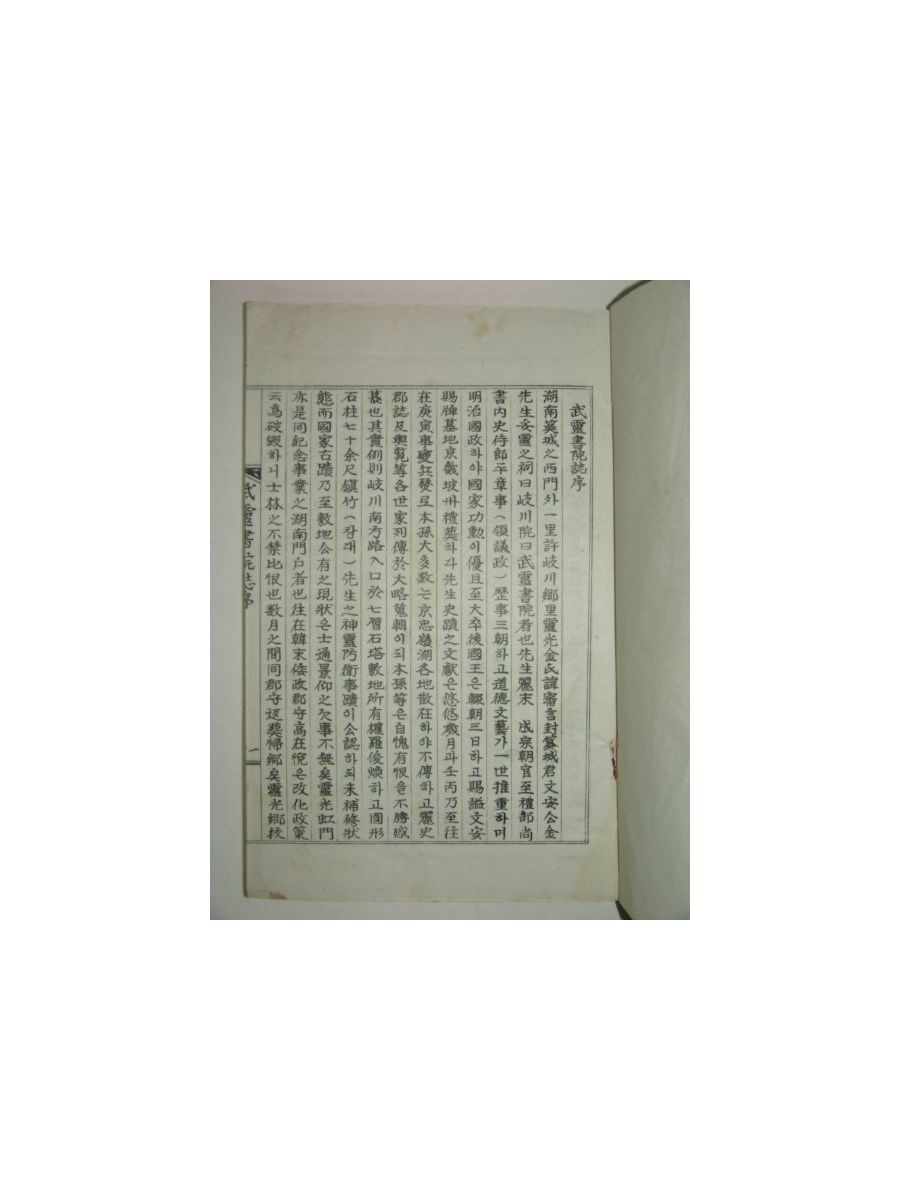 武靈書院誌序
湖南筽城之西門外一里許岐川鄕里靈光金氏諱審言封筽城君文安公金
先生妥靈之祠曰岐川院曰武靈書院者也先生麗末 成宗朝官至禮部尙
書内史侍郎平章事(領議政)歷事三朝하고道德文藝가一世推重하며
明治國政하야國家功勳이優且至大卒後國王은輟朝三日하고賜謚文安
賜牌墓地京畿坡州禮葬하라先生史蹟之文獻은悠悠歲月과壬丙乃至往
在庚寅事變兵燹로本孫大多數는京忠嶺湖各地散在하야不傳하고麗史
郡誌及輿覽等各世家列傳於大略蒐輯이되本孫等은自愧有恨을不勝感
慕也其實例則岐川南方路入口於七層石塔敷地所有權羅俊煥하고圓形
石柱七十余尺鎭竹(장대)先生之神靈防衛事蹟이公認하되未補修狀
態而國家古蹟乃至敷地公有之現狀은士通景仰之欠事不無矣靈光虹門
亦是同紀念事業之湖南門户者也往在韓末倭政郡守高在悅은改化政策
云爲破毁하니士林之不禁比恨也数月之間同郡守返葬帰鄕矣靈光鄕校
武靈書院誌序
一